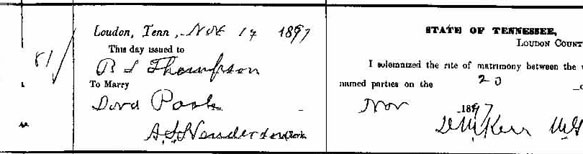 81
Loudon, Tenn., Nov 14 1897
This day issued to
R L Thompson
To Marry
Dora Pook
A. S. Henderson Clerk
STATE OF TENNESSEE,
LOUDON COURT
I solemnized the rite of matrimony between the
named parties on the 20
Nov 1897
Kerr